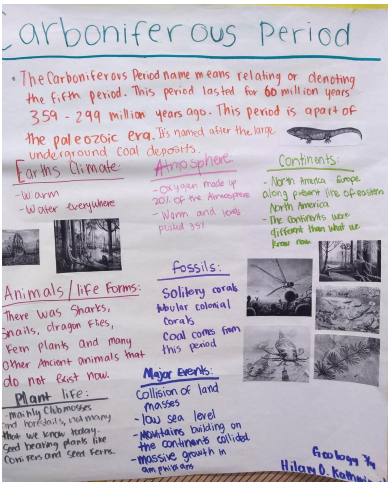 Carboniferous Period
• The Carboniferous Period name means relating or denoting
the fifth period. This period lasted for 60 million years
359 - 299 million years ago. This period is apart of
the paleozoic era. It's named after the large
underground coal deposits.
Earths Climate:
- Warm
- Water everywhere
Atmosphere
- Oxygen made up
20% of the Atmosphere
- Warm and levels
35%
Continents:
- North America Europe
along present line of eastern
North America
- The Continents were
different than what we
know now.
Animals/life Forms:
There was Sharks,
Snails, dragon flies,
Fern plants and many
Other Ancient animals that
do not Exist now.
Fossils:
Solitory corals
tubular colonial
Corals
Coal comes from
this period
Plant life:
- mainly Clubmosses
and horsetails, not many
that we know today.
Seed bearing plants like
Conifers and Seed Ferns.
Major Events:
Collision of land
masses
- low sea level
- Mountains building on
the continents collided
- massive growth in
amphibians
Geology
Hilary D.